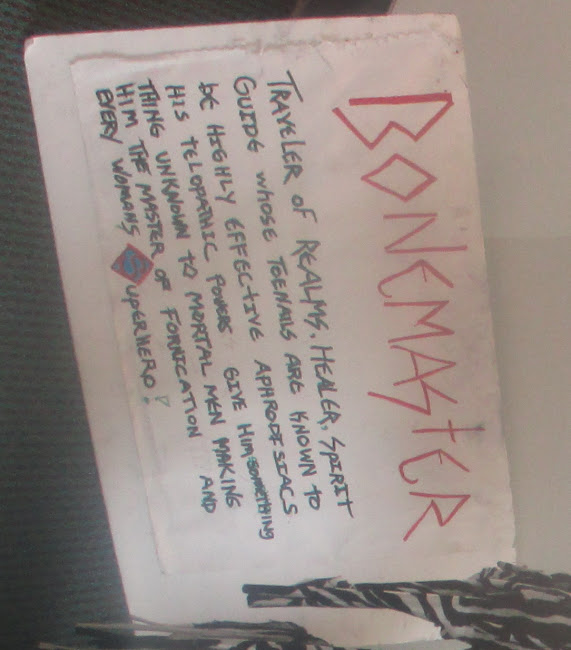 BONEMASTER
TRAVELER OF REALMS, HEALER, SPIRIT
GUIDE WHOSE TOENAILS ARE KNOWN TO
BE HIGHLY EFFECTIVE APHRODISIACS
HIS TELOPATHIC POWERS GIVE HIM SOMETHING
THING UNKNOWN TO MORTAL MEN MAKING
HIM THE MASTER OF FORNICATION AND
EVERY WOMANS SUPERHERO!